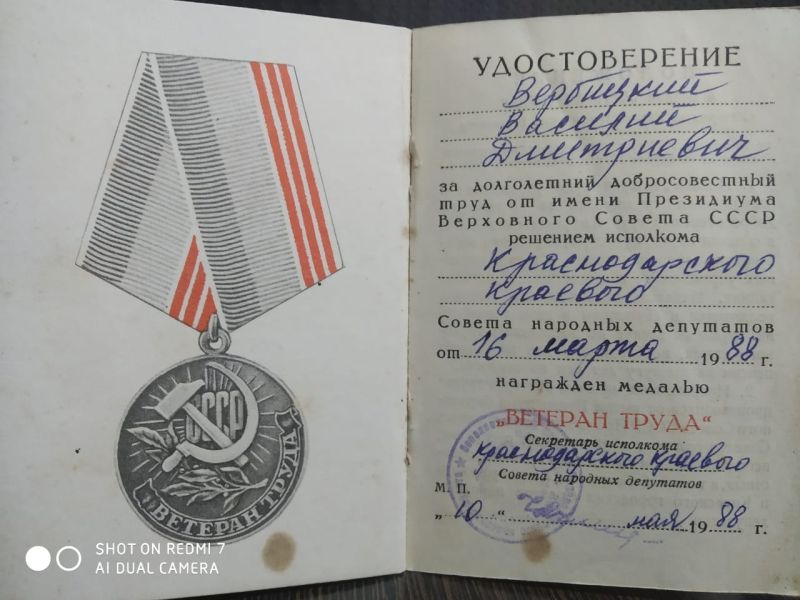 СССР
ВЕТЕРАН ТРУДА
SHOT ON REDMI 7
AI DUAL CAMERA
УДОСТОВЕРЕНИЕ
Вербицкий
Василий
Дмитриевич
за долголетний добросовестный
труд от имени Президиума
Верховного Совета СССР
решением исполкома
Краснодарского
Краевого
Совета народных депутатов
от 16 марта 1988 г.
награжден медалью
„ВЕТЕРАН ТРУДА“
Секретарь исполкома
Краснодарского Краевого
Совета народных депутатов
М. П.
„10“ мая 1988 г.